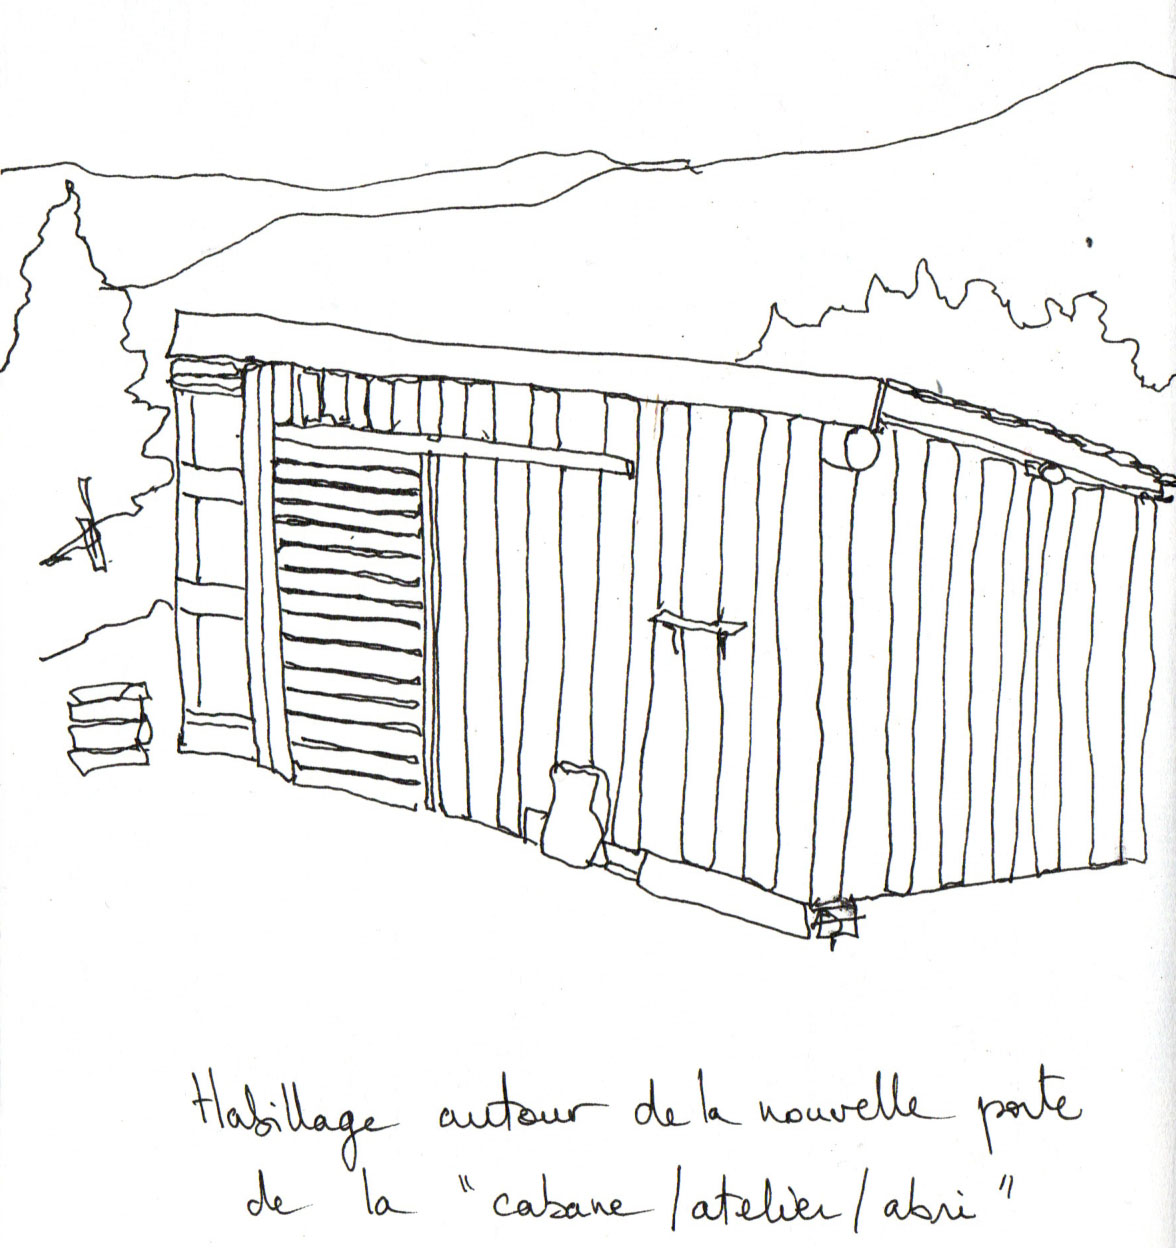 Habillage autour de la nouvelle porte
de la "cabane/atelier/abri"